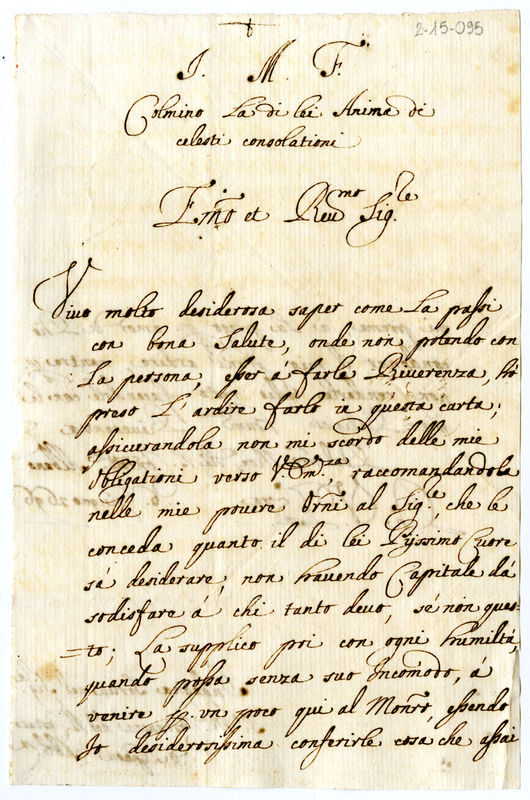 2-15-095
J. M. F.
Colmino La di lei Anima di
celesti consolationi
Em̃o et Reu.mo Sig.le
Viuo molto desiderosa saper come La passi
con bona Salute, onde non potendo con
La persona, esser á farle Riuerenza, hó
preso L'ardire farlo in questa carta;
assicurandola non mi scordo delle mie
Obligationi verso V. Em.za, raccomandandola
nelle mie pouere Orñi al Sig.e, che le
conceda quanto il di lei Pijssimo Cuore
sá desiderare, non hauendo Capitale dá
sodisfare á chi tanto deuo, sé non ques=
=to; La supplico poi con ogni humiltá,
quando possa senza suo Incom̃odo, á
venire p. vn poco qui al Monrõ, essendo
Io desiderosissima conferirle cosa che assai